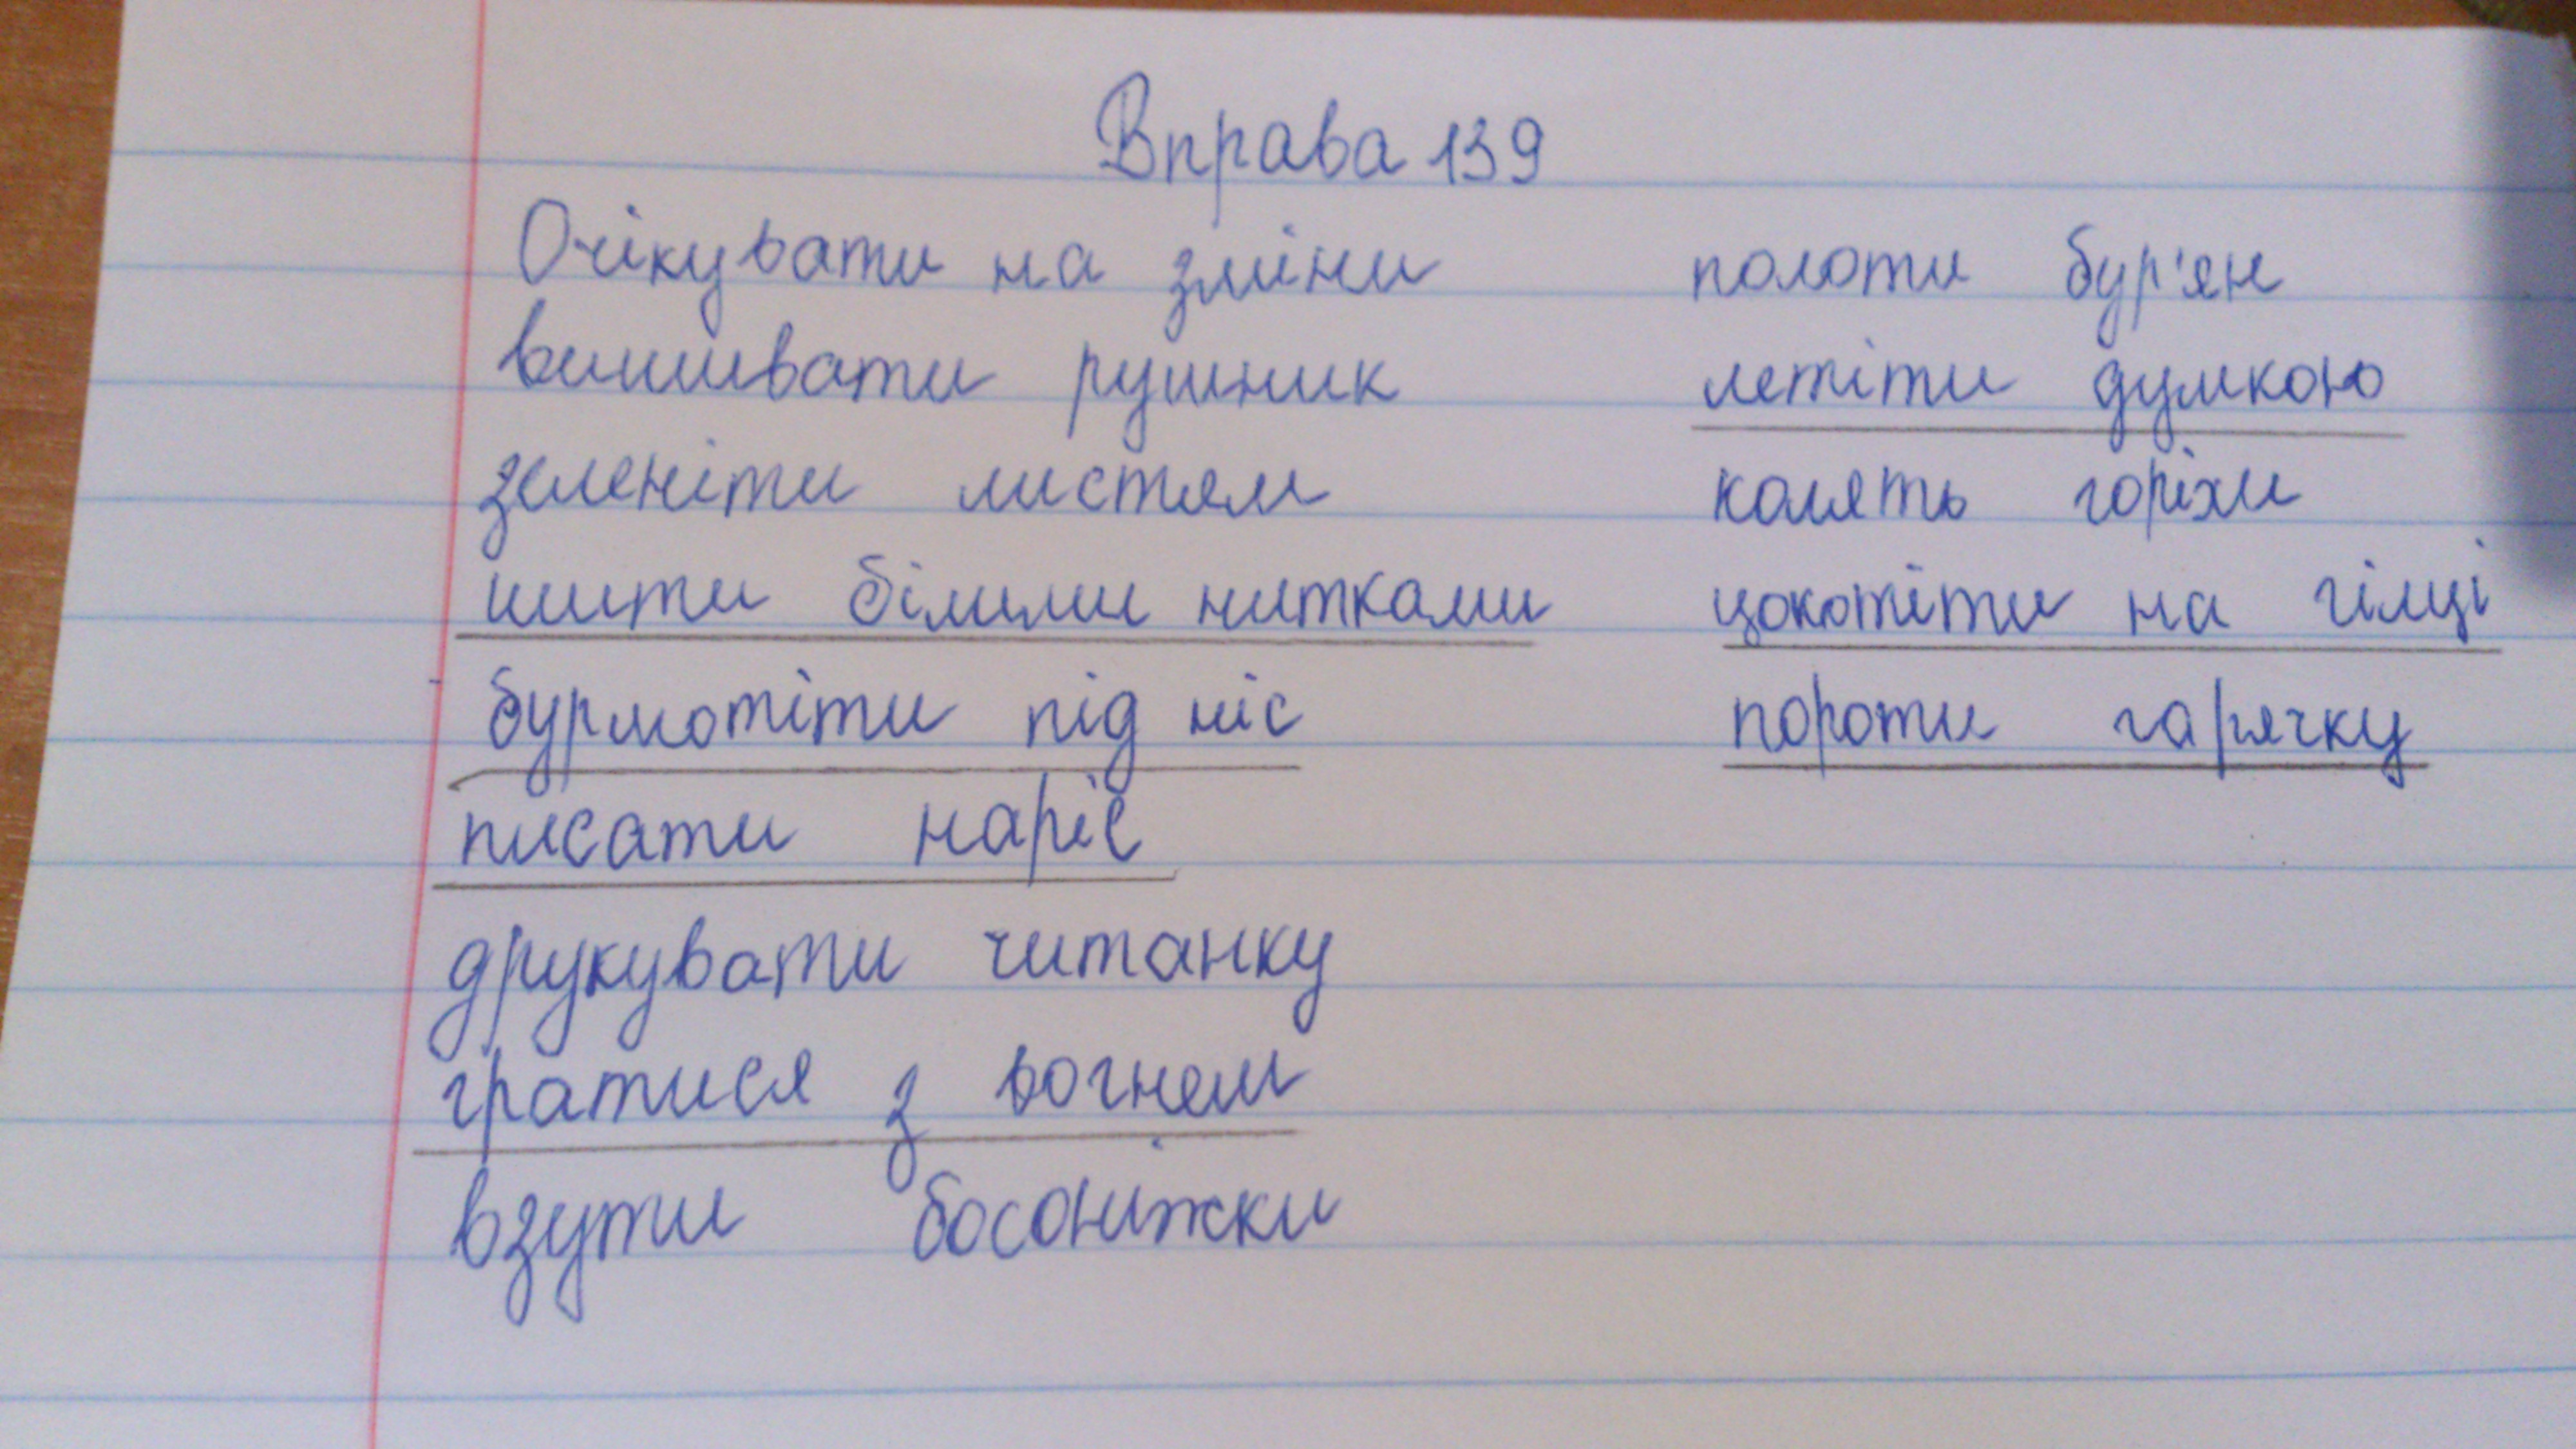 Вправа 139
Очікувати на зміни
вишивати рушник
зеленіти листям
шити білими нитками
бурмотіти під ніс
писати наріс
друкувати читанку
гратися з вогнем
взути босоніжки
полоти бур'ян
летіти думкою
колять горіхи
цокотіти на гілці
пороти гарячку